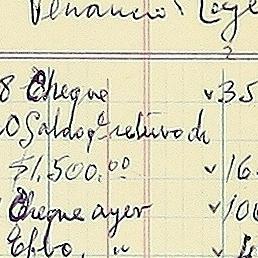 Venancio Leye
2
8 Cheque √ 35
0 Saldo q̄ retiro de
$1,500.00 √ 16.
Cheque ayer √ 100
Efvo. "